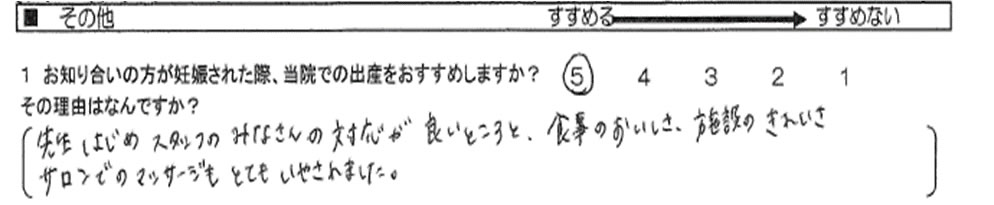 ■ その他 すすめる すすめない
1 お知り合いの方が妊娠された際、当院での出産をおすすめしますか? 5 4 3 2 1
その理由はなんですか?
先生はじめ スタッフの みなさんの 対応が 良いところと、食事のおいしさ、施設の きれいさ
サロンでの マッサージも とても いやされました。